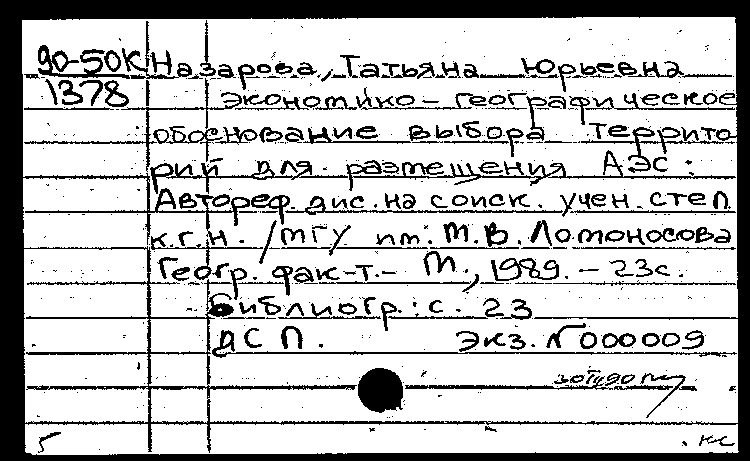 90-50К Назарова, Татьяна Юрьевна
1378 Экономико-географическое
обоснование выбора террито
рий для размещения АЭС:
Автореф. дис. на соиск. учен. степ
к.г.н. /МГУ им. М.В. Ломоносова
Геогр. фак-т.- М., 1989. - 23с.
Библиогр.: с. 23
ДСП. Экз. N 000009
5 кс